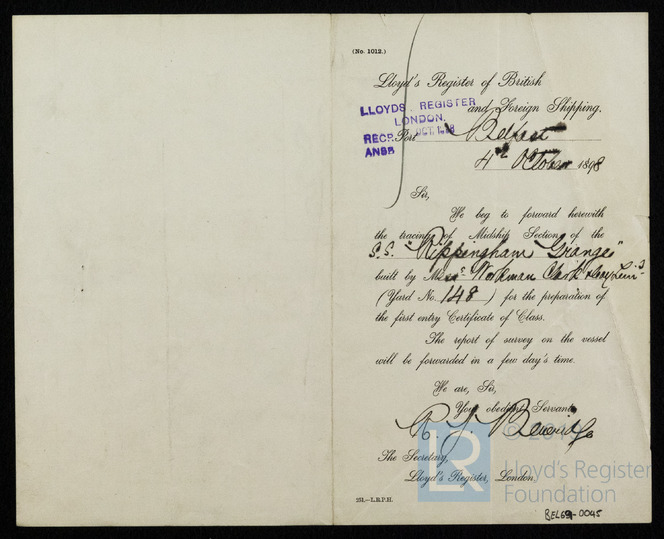 (No. 1012.)
Lloyd's Register of British
and Foreign Shipping,
LLOYDS REGISTER
LONDON.
RECP. OCT. 1898
ANSR
Port Belfast
4th October 1898
Sir,
We beg to forward herewith
the tracing of Midship Section of the
S.S. "Rippingham Grange"
built by Messrs Workman Clark & Co
(Yard No. 148) for the preparation of
the first entry Certificate of Class.
The report of survey on the vessel
will be forwarded in a few day's time.
We are, Sir,
Your obedient Servants
R. J. Beveridge
The Secretary,
Lloyd's Register, London.
251.—L.R.P.H.
© 2019
LR
Lloyd's Register
Foundation
BEL69-0045